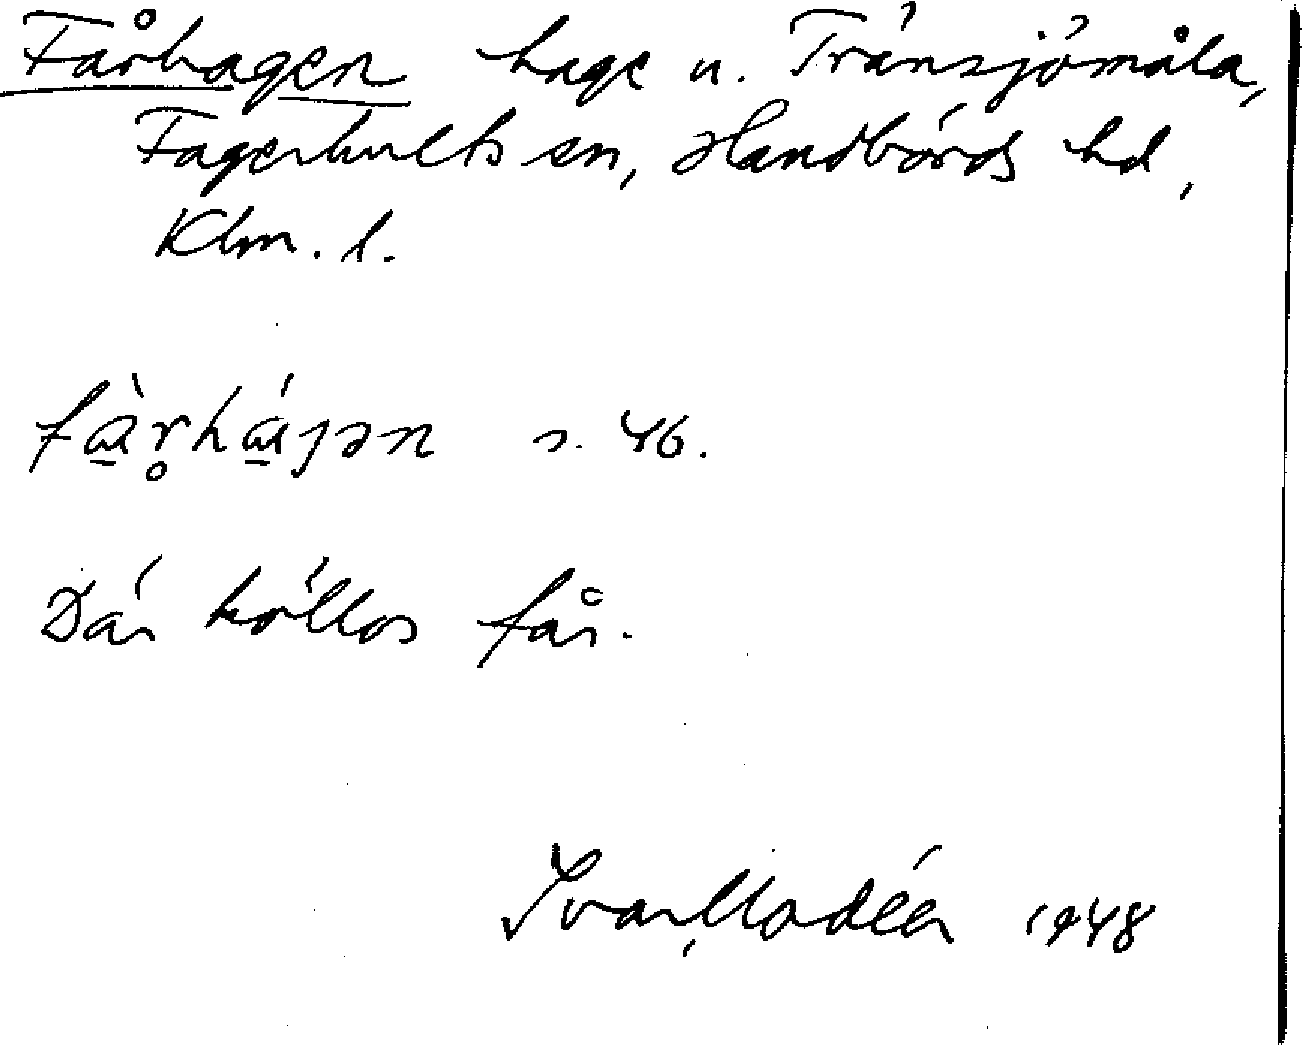 Fårhagen hage u. Tränsjömåla,
Fagerhults sn, Handbörds hd,
Klm. l.
s. 46.
Där hölls får.
Ivar Modéer 1948